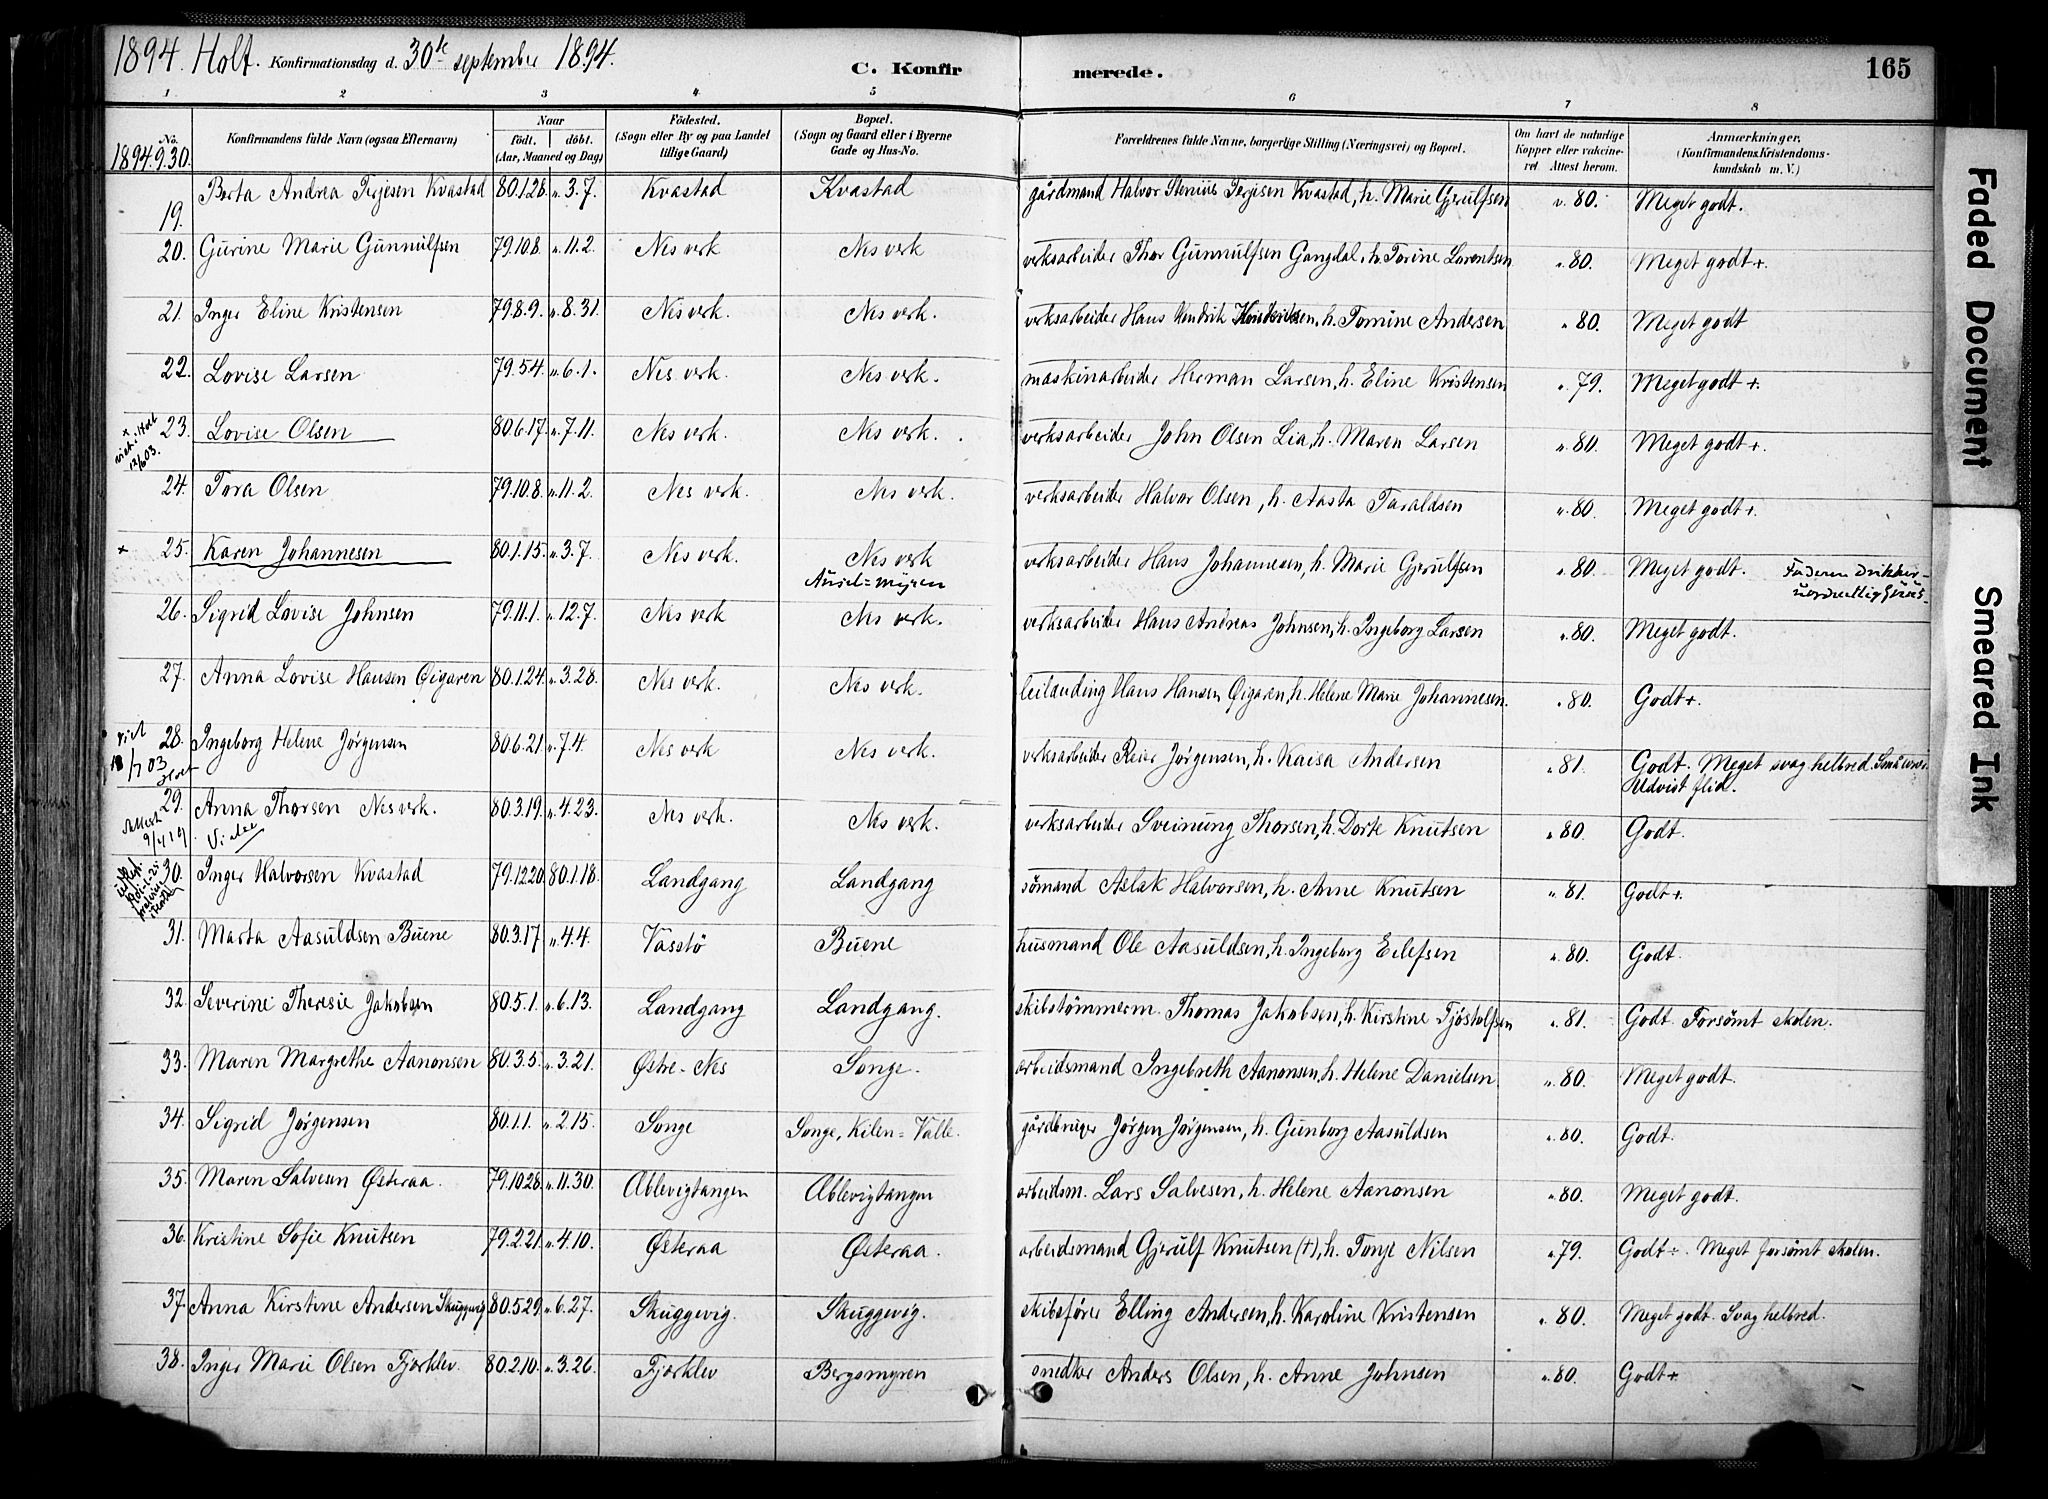 1894. Holt. Konfirmationsdag d. 30te september 1894.
C. Konfirmerede.
165
1 2 3 4 5 6 7 8
No. 1894.9.30.
Konfirmandens fulde Navn (ogsaa Efternavn)
Naar født. døbt. (Aar, Maaned og Dag)
Fødested. (Sogn eller By og paa Landet tillige Gaard)
Bopæl. (Sogn og Gaard eller i Byerne Gade og Hus-No.
Forældrenes fulde Navne, borgerlige Stilling (Næringsvei) og Bopæl.
Om havt de naturlige Kopper eller vakcineret Attest herom.
Anmærkninger, (Konfirmandens Kristendomskundskab m. V.)
19. Berta Andrea Terjesen Kvastad 80.1.28. „ 3.7. Kvastad Kvastad gårdmand Halvor Stenius Terjesen Kvastad, h. Marie Gjerulfsen v. 80. Meget godt.
20. Gurine Marie Gunnulfsen 79.10.8. „ 11.2. Nes verk Nes verk verksarbeider Thor Gunnulfsen Gangdal, h. Torine Larentsen „ 80. Meget godt+.
21. Inger Eline Kristensen 79.8.9. „ 8.31. Nes verk. Nes verk. verksarbeider Hans Hendrik Kristensen, h. Tomine Andersen „ 80. Meget godt
22. Lovise Larsen 79.5.4. „ 6.1. Nes verk. Nes verk. maskinarbeider Herman Larsen, h. Eline Kristensen „ 79. Meget godt+.
x viet i Holt 12/6 03. 23. Lovise Olsen 80.6.17. „ 7.11. Nes verk. Nes verk. verksarbeider John Olsen Lia, h. Maren Larsen „ 80. Meget godt+.
24. Tora Olsen 79.10.8. „ 11.2. Nes verk. Nes verk. verksarbeider Halvor Olsen, h. Aasta Taraldsen „ 80. Meget godt+.
+ 25. Karen Johannesen 80.1.15. „ 3.7. Nes verk. Nes verk verksarbeider Hans Johannesen, h. Marie Gjerulfsen „ 80. Meget godt. Faderen drikker
26. Sigrid Lovise Johnsen 79.11.1. „ 12.7. Nes verk Nes verk. verksarbeider Hans Andreas Johnsen, h. Ingeborg Larsen „ 80. Meget godt.
27. Anna Lovise Hansen Øigaren 80.1.24. „ 3.28. Nes verk. Nes verk. leilænding Hans Hansen Øigaren, h. Helene Marie Johannesen. „ 80. Godt+.
28. Ingeborg Helene Jørgensen 80.6.21. „ 7.4. Nes verk Nes verk. verksarbeider Reier Jørgensen, h. Kaisa Andersen „ 81. Godt. Meget svag helbred.
Udvist flid.
29. Anna Thorsen Nes verk. 80.3.19. „ 4.23. Nes verk. Nes verk. verksarbeider Sveinung Thorsen, h. Dorte Knutsen „ 80. Godt.
30. Inger Halvorsen Kvastad 79.12.20. 80.1.18. Landgang Landgang sømand Aslak Halvorsen, h. Anne Knutsen „ 81. Godt+.
31. Marta Aasuldsen Buene 80.3.17. „ 4.4. Vasstø Buene husmand Ole Aasuldsen, h. Ingeborg Eilefsen „ 80. Godt.
32. Severine Theresie Jakobsen 80.5.1. „ 6.13. Landgang Landgang. skibstømmerm. Thomas Jakobsen, h. Kirstine Tjøstolfsen „ 81. Godt. Forsømt skolen.
33. Maren Margrethe Aanonsen 80.3.5. „ 3.21. Østre-Nes Songe. arbeidsmand Ingebreth Aanonsen, h. Helene Danielsen. „ 80. Meget godt.
34. Sigrid Jørgensen 80.1.1. „ 2.15. Songe Songe, Kilen=Valle. gårdbruger Jørgen Jørgensen, h. Gunborg Aasuldsen „ 80. Godt.
35. Maren Salvesen Østeraa. 79.10.28. „ 11.30. Ablevigtangen Ablevigtangen arbeidsm. Lars Salvesen, h. Helene Aanonsen „ 80. Meget godt.
36. Kristine Sofie Knutsen 79.2.21. „ 4.10. Østeraa Østeraa. arbeidsmand Gjerulf Knutsen (+), h. Tonje Nilsen „ 79. Godt÷. Meget forsømt skolen.
37. Anna Kirstine Andersen Skuggevig 80.5.29. „ 6.27. Skuggevig. Skuggevig. skibsfører Elling Andersen, h. Karoline Kristensen „ 80. Meget godt. Svag helbred.
38. Inger Marie Olsen Fjørklev. 80.2.10. „ 3.26. Fjørklev Bergsmyren snedker Anders Olsen, h. Anne Johnsen „ 80. Godt+
Faded Document
Smeared Ink